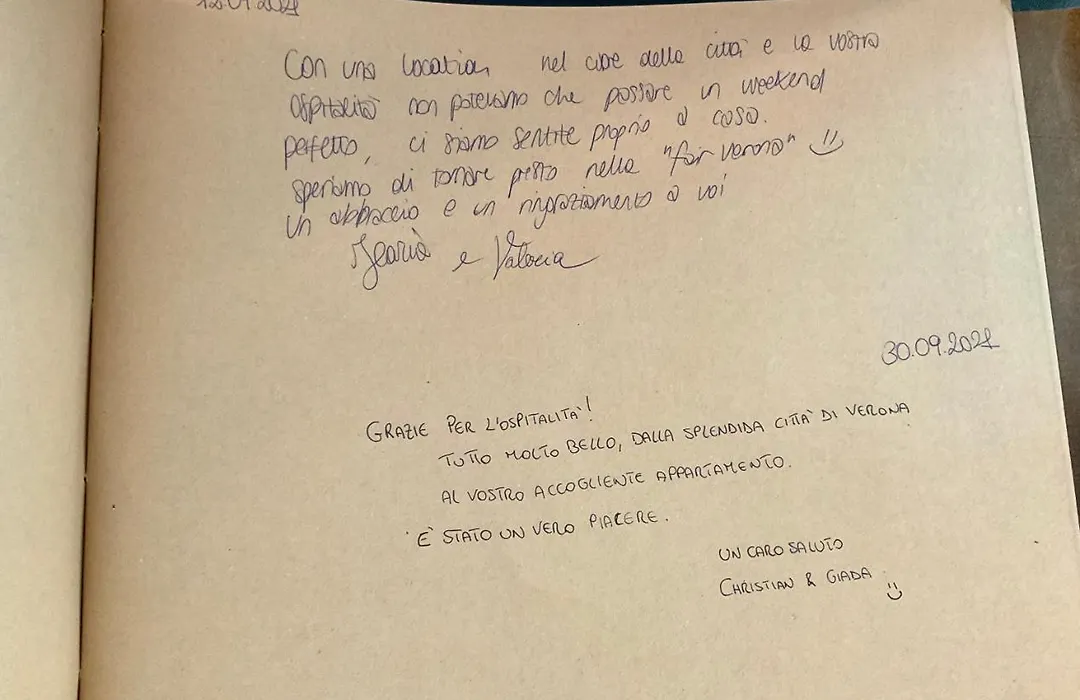 Con una location nel cuore della città e la vostra
ospitalità non potevamo che passare un weekend
perfetto, ci siamo sentite proprio a casa.
speriamo di tornare presto nella "fair verona"
un abbraccio e un ringraziamento a voi
Ilaria e
30.09.2021
GRAZIE PER L'OSPITALITÀ!
TUTTO MOLTO BELLO, DALLA SPLENDIDA CITTÀ DI VERONA
AL VOSTRO ACCOGLIENTE APPARTAMENTO.
È STATO UN VERO PIACERE.
UN CARO SALUTO
CHRISTIAN & GIADA